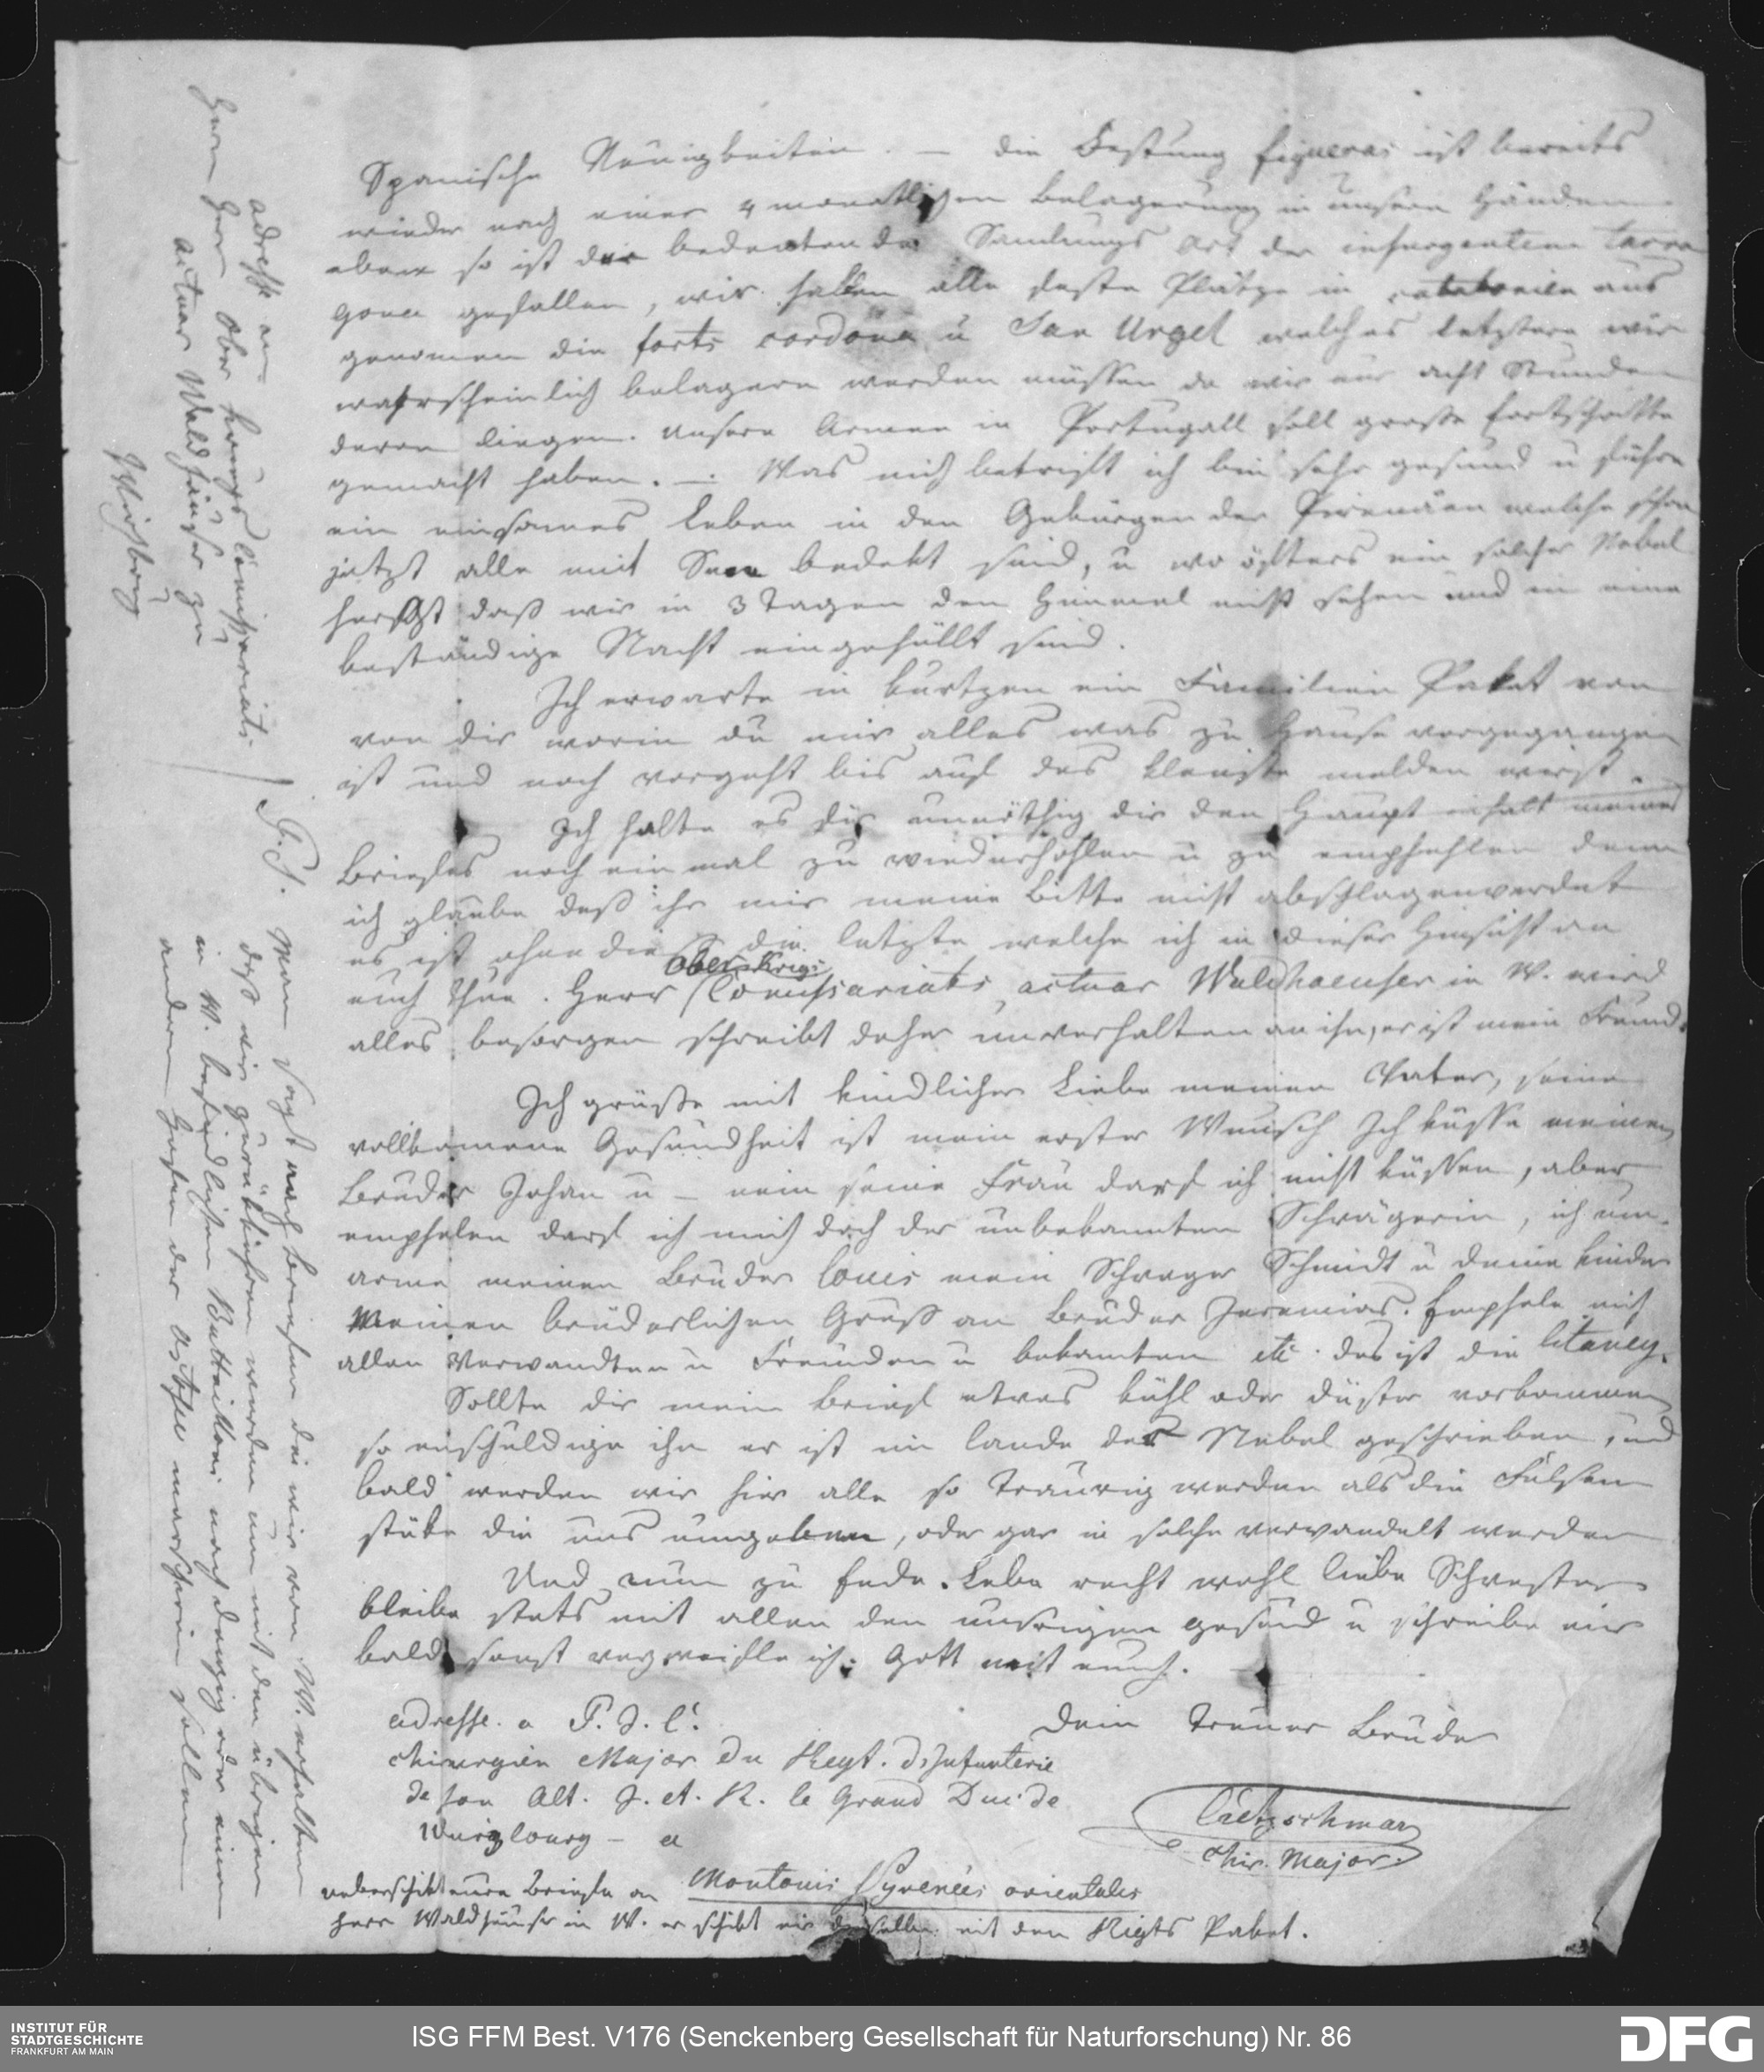 Spanische Neuigkeiten. — die Festung figueras ist bereits
wieder nach einer 4 monatlichen Belagerung in unsern Händen
eben so ist der bedeutende Samlungs Ort der insurgenten Tarra
gona gefallen, wir haben alle feste Plätze in catalonien aus
genomen die forts cordona u San Urgel welches letztere wir
wahrscheinlich belagern werden müssen da wir nur acht Stunden
davon liegen. Unsere Armee in Portugall soll grosse fortschritte
gemacht haben. — Was mich betrifft ich bin sehr gesund u führe
ein einsames Leben in den Gebürgen der Pirenäen welche schon
jetzt alle mit Snee bedekt sind, u wo öfters ein solcher Nebel
herscht daß wir in 3 Tagen den Himmel nicht sehen und in eine
beständige Nacht eingehüllt sind.
Ich erwarte in kurtzen ein Familien Paket von
von dir worin du mir alles was zu Hause vorgegangen
ist und noch vorgeht bis auf das kleinste melden wirst.
Ich halte es für unnöthig dir den Haupt inhalt meines
Briefes noch ein mal zu wiederhohlen u zu empfehlen denn
ich glaube daß ihr mir meine Bitte nicht abschlagen werdet
es ist ohne dies die letzte welche ich in dieser Hinsicht an
Ober Krigs
euch thue. Herr Comissariats actuar Waldhaeuser in W. wird
alles besorgen schreibt daher unverhalten an ihn, er ist mein Freund.
Ich grüße mit kindlicher Liebe meinen Vater, seine
vollkomene Gesundheit ist mein erster Wunsch Ich küsse meinen
Bruder Johan u — nein seine Frau darf ich nicht küssen, aber
empfelen darf ich mich doch der unbekannten Schwägerin, ich um¬
arme meinen Bruder Louis mein Schwager Schmidt u deine kinder
Meinen brüderlichen Gruss an Bruder Jeremias. Empfele mich
allen Verwandten u Freunden u bekannten etc. das ist die Litaney.
Sollte dir mein Brief etwas kühl oder düster vorkommen
so enschuldige ihn er ist im Lande der Nebel geschrieben, und
bald werden wir hier alle so traurig werden als die Felsen
stüke die uns umgeben, oder gar in solche verwandelt werden
Und nun zu Ende. Lebe recht wohl liebe Schwester
bleibe stets mit allen den unsrigen gesund u schreibe mir
bald sonst verzweifle ich. Gott mit euch.
Dein treuer Bruder
Cretzschmar
Chir. Major.
adresse. a P. J. C.
Chirurgien Major du Regt. d'Infanterie
de son Alt. J. et. R. le Grand Duc de
Würzbourg — a
Montlouis Pyrenées orientales
ueberschikt eure Briefe an
Herr Waldhäuser in W. er schikt mir dieselben mit den Rigts Paket.
adresse an
Herrn Ober kriegs Comissariats
actuar Waldhäuser zu
Würzburg
P. S.
Man sagt nach Briefen die wir von W. erhalten
daß wir zurükkehren werden um mit den übrigen
in W. befindlichen Battaillons nach Danzig oder einem
andern Hafen der Ostsee marschiren sollen
INSTITUT FÜR
STADTGESCHICHTE
FRANKFURT AM MAIN
ISG FFM Best. V176 (Senckenberg Gesellschaft für Naturforschung) Nr. 86
DFG